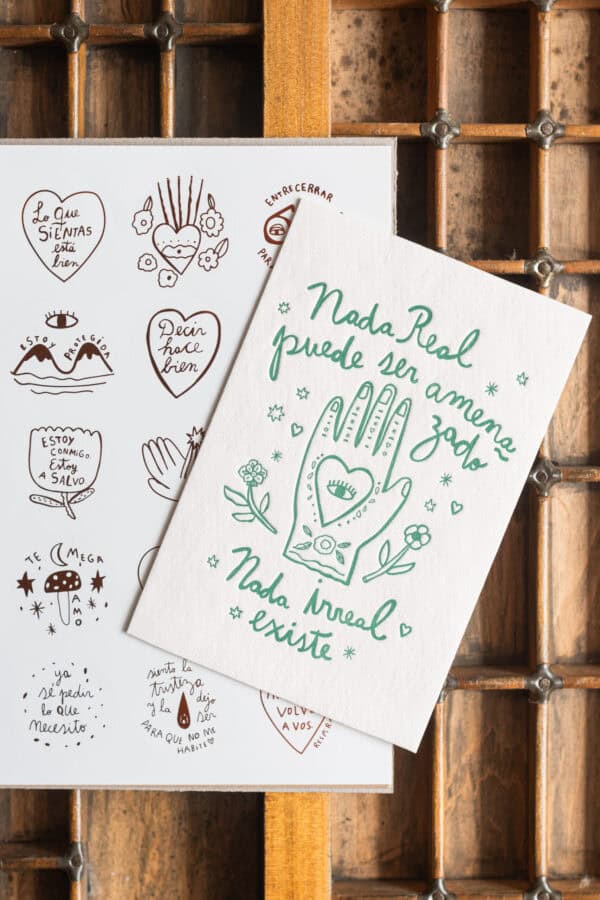 Lo que
SIENTAS
está
bien
ENTRECERRAR
PAR
ESTOY PROTEGIDA
Decir
hace
bien
ESTOY
CONMIGO.
Estoy
A SALVO
TE MEGA
AMO
ya
sé pedir
lo que
necesito
siento la
tristeza
y la dejo
ser
PARA QUE NO ME
HABITE
VOLVÉ
A VOS.
Nada Real
puede ser amena-
zado
Nada irreal
existe